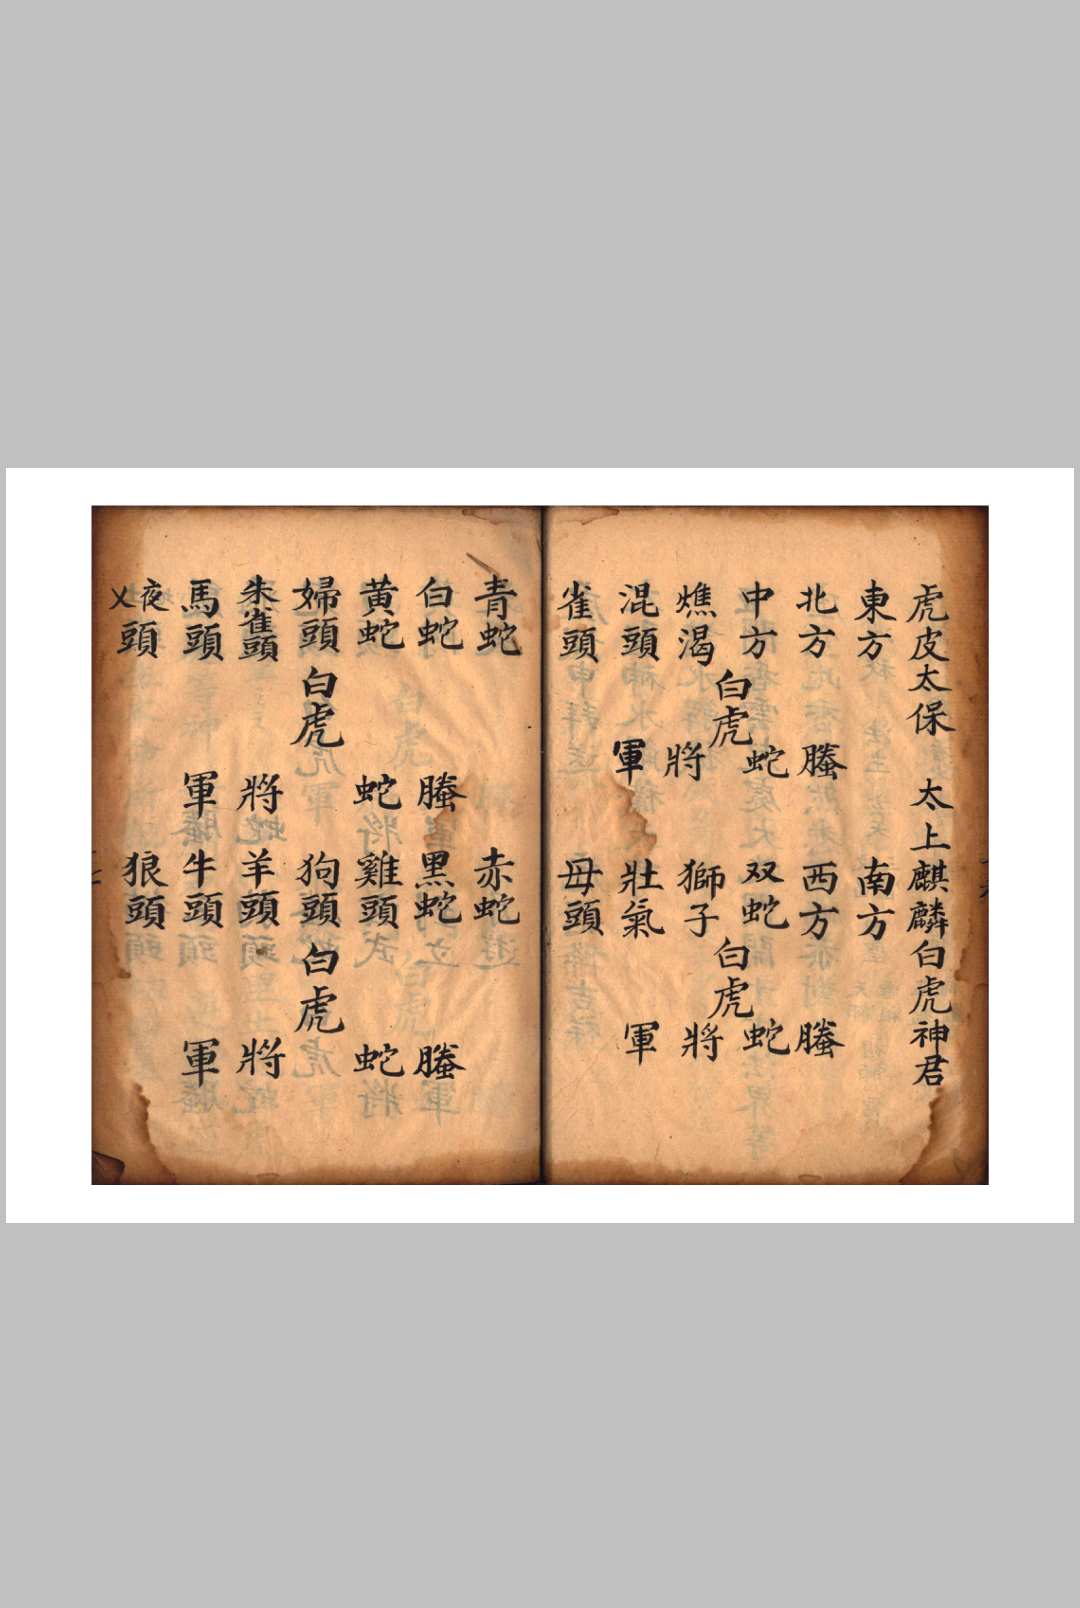 虎皮太保 太上麒麟白虎神君
東方 南方
北方 西方
中方 双蛇
燋渴 獅子
混頭 壯氣
雀頭 母頭
白虎
螣
蛇
將
軍
白虎
螣
蛇
將
軍
青蛇 赤蛇
白蛇 黑蛇
黄蛇 雞頭
婦頭 狗頭
朱雀頭 羊頭
馬頭 牛頭
夜乂頭 狼頭
白虎
螣
蛇
將
軍
白虎
螣
蛇
將
軍